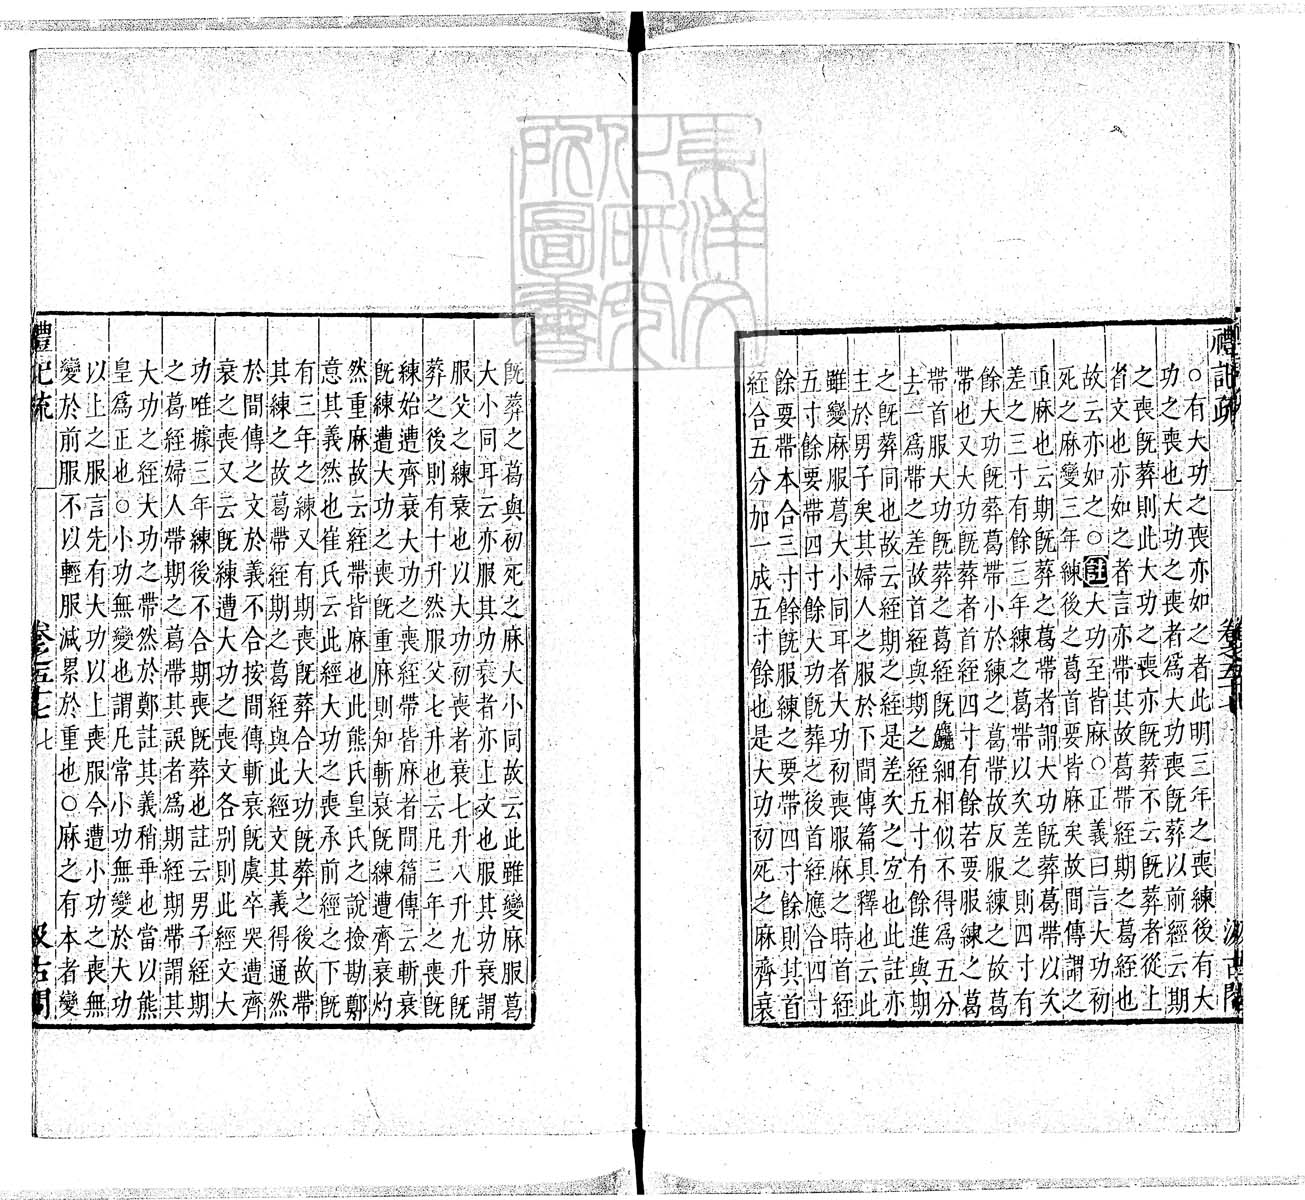 禮記疏
卷之五十七
汲古閣
○有大功之喪亦如之者此明三年之喪練後有大
功之喪也大功之喪者爲大功喪旣葬以前經云期
之喪旣葬則此大功之喪亦旣葬不云旣葬者從上
省文也亦如之者言亦帶其故葛帶絰期之葛絰也
故云亦如之○註大功至皆麻○正義曰言大功初
死之麻變三年練後之葛首要皆麻矣故間傳謂之
重麻也云期旣葬之葛帶者謂大功旣葬葛帶以次
差之三寸有餘三年練之葛帶以次差之則四寸有
餘大功旣葬葛帶小於練之葛帶故反服練之故葛
帶也又大功旣葬者首絰四寸有餘若要服練之葛
帶首服大功旣葬之葛絰旣麤細相似不得爲五分
去一爲帶之差故首絰與期之絰五寸有餘進與期
之旣葬同也故云絰期之絰是差次之宐也此註亦
主於男子矣其婦人之服於下間傳篇具釋也云此
雖變麻服葛大小同耳者大功初喪服麻之時首絰
五寸餘要帶四寸餘大功旣葬之後首絰應合四寸
餘要帶本合三寸餘旣服練之要帶四寸餘則其首
絰合五分加一成五寸餘也是大功初死之麻齊衰
旣葬之葛與初死之麻大小同故云此雖變麻服葛
大小同耳云亦服其功衰者亦上文也服其功衰謂
服父之練衰也以大功初喪者衰七升八升九升旣
葬之後則有十升然服父七升也云凡三年之喪旣
練始遭齊衰大功之喪絰帶皆麻者間篇傳云斬衰
旣練遭大功之喪旣重麻則知斬衰旣練遭齊衰灼
然重麻故云絰帶皆麻也此熊氏皇氏之說撿勘鄭
意其義然也崔氏云此經大功之喪承前經之下旣
有三年之練又有期喪旣葬合大功旣葬之後故帶
其練之故葛帶絰期之葛絰與此經文其義得通然
於間傳之文於義不合按間傳斬衰旣虞卒哭遭齊
衰之喪又云旣練遭大功之喪文各別則此經文大
功唯據三年練後不合期喪旣葬也註云男子絰期
之葛絰婦人帶期之葛帶其誤者爲期絰期帶謂其
大功之絰大功之帶然於鄭註其義稍乖也當以熊
皇爲正也○小功無變也謂凡常小功無變於大功
以上之服言先有大功以上喪服今遭小功之喪無
變於前服不以輕服減累於重也○麻之有本者變
禮記疏
卷之五十七
七
汲古閣